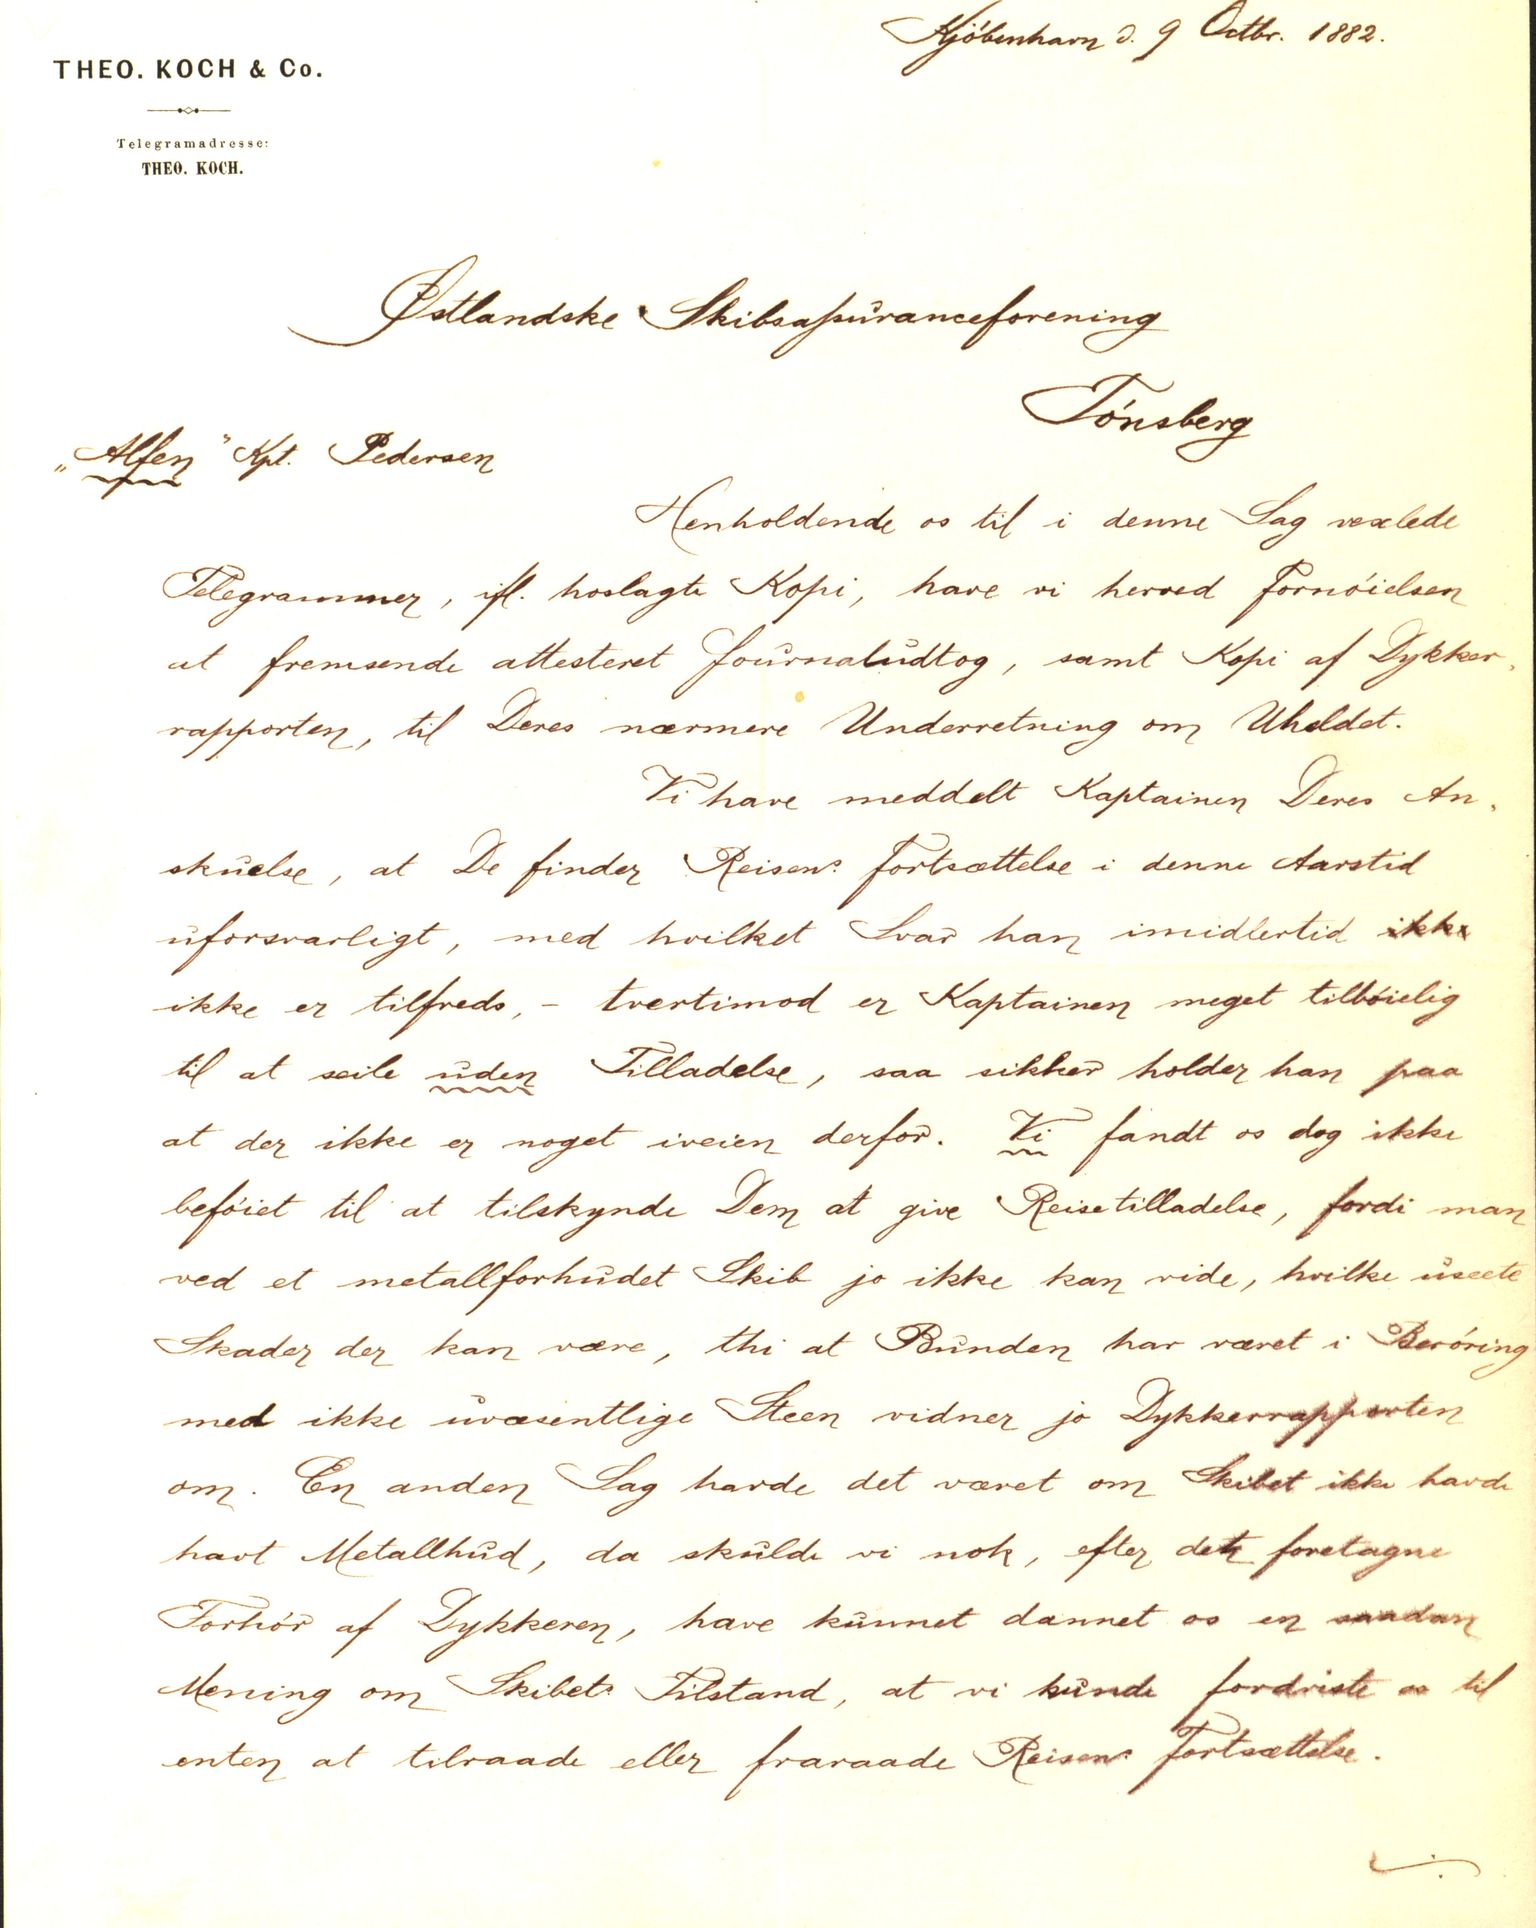 Kjöbenhavn d. 9 Octbr. 1882.
THEO. KOCH & Co.
Telegramadresse:
THEO. KOCH.
Østlandske Skibsassuranceforening
Tönsberg
„Alfen” Kpt. Pedersen
Henholdende os til i denne Sag vexlede
Telegrammer, ifl. hoslagte Kopi, have vi herved Fornöielsen
at fremsende attesteret Journaludtog, samt Kopi af Dykker-
rapporten, til Deres nærmere Underretning om Uheldet.
Vi have meddelt Kaptainen Deres An-
skuelse, at De finder Reisens Fortsættelse i denne Aarstid
uforsvarligt, med hvilket Svar han imidlertid ikke
ikke er tilfreds, - tvertimod er Kaptainen meget tilböielig
til at seile uden Tilladelse, saa sikker holder han paa
at der ikke er noget iveien derfor. Vi fandt os dog ikke
beföiet til at tilskynde Dem at give Reisetilladelse, fordi man
ved et metallforhudet Skib jo ikke kan vide, hvilke useete
Skader der kan være, thi at Bunden har været i Beröring
med ikke uvæsentlige Steen vidner jo Dykkerrapporten
om. En anden Sag havde det været om Skibet ikke havde
havt Metallhud, da skulde vi nok, efter det foretagne
Forhör af Dykkeren, have kunnet dannet os en saadan
Mening om Skibets Tilstand, at vi kunde fordriste os til
enten at tilraade eller fraraade Reisens Fortsættelse.